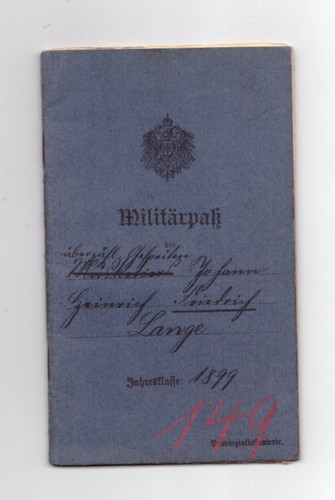 Militärpaß
des
überzähl. Gefreiten
Musketiers Johann
Heinrich Friedrich
Lange
Jahresklasse: 1899
149
Provinzialinfanterie.